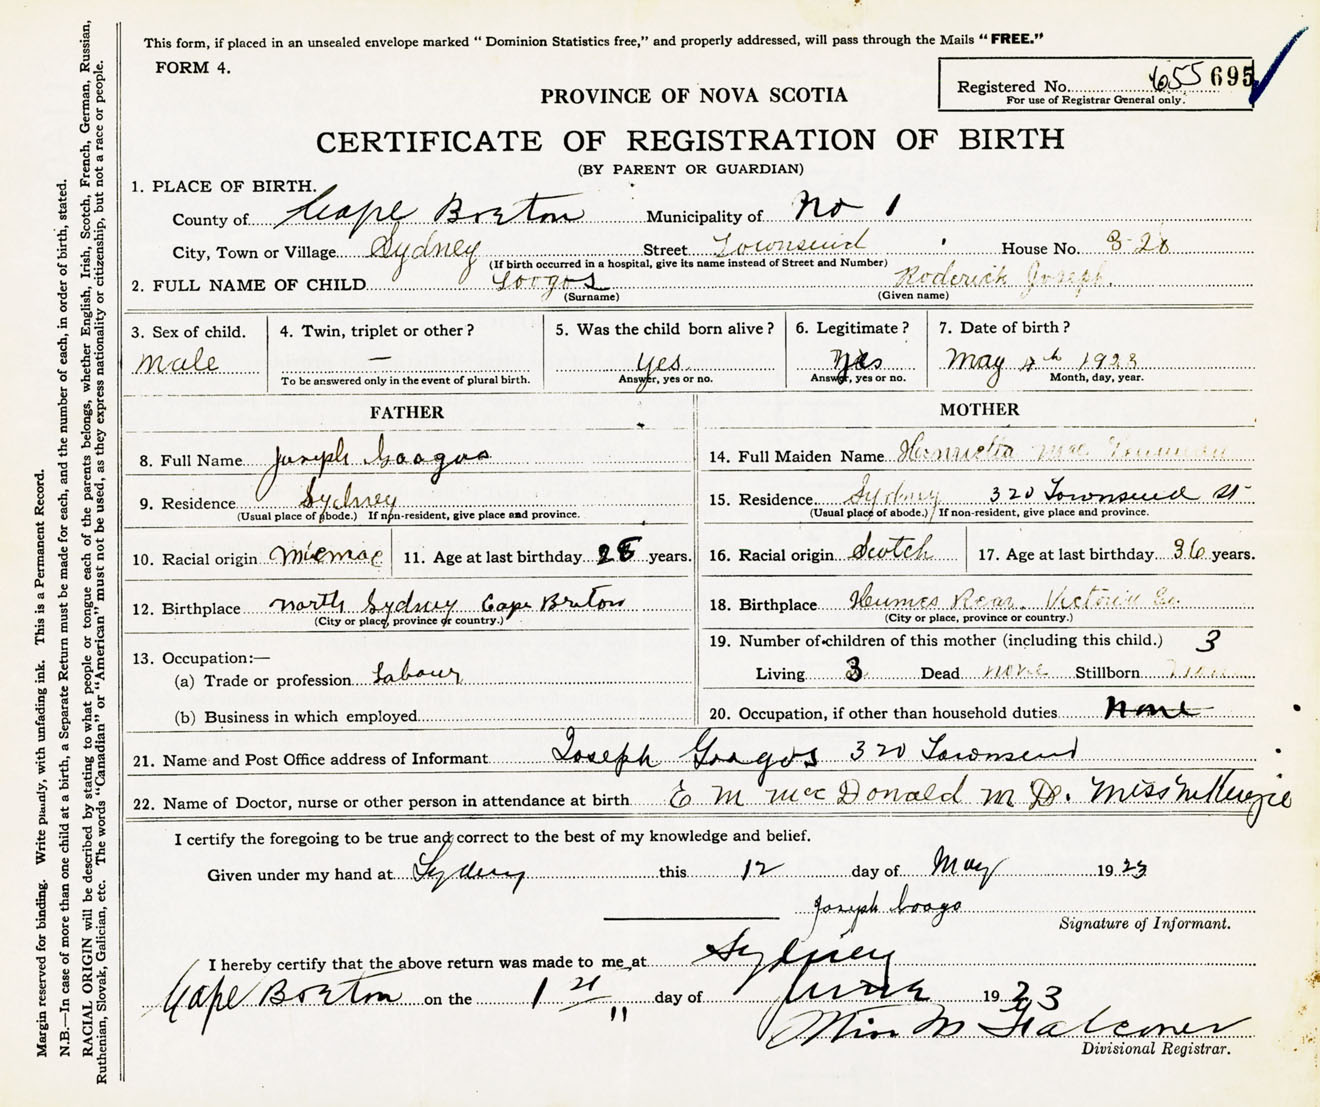 This form, if placed in an unsealed envelope marked "Dominion Statistics free," and properly addressed, will pass through the Mails "FREE."
FORM 4.
Registered No. 655 695
For use of Registrar General only.
PROVINCE OF NOVA SCOTIA
CERTIFICATE OF REGISTRATION OF BIRTH
(BY PARENT OR GUARDIAN)
1. PLACE OF BIRTH.
County of Cape Breton Municipality of No 1
City, Town or Village Sydney Street Townsend House No. 3-20
(If birth occurred in a hospital, give its name instead of Street and Number)
2. FULL NAME OF CHILD Googos Roderick Joseph.
(Surname) (Given name)
3. Sex of child. 4. Twin, triplet or other? 5. Was the child born alive? 6. Legitimate? 7. Date of birth?
male — yes yes May 4th 1923
To be answered only in the event of plural birth. Answer, yes or no. Answer, yes or no. Month, day, year.
FATHER
8. Full Name Joseph Googos
9. Residence Sydney
(Usual place of abode.) If non-resident, give place and province.
10. Racial origin Micmac 11. Age at last birthday 28 years.
12. Birthplace North Sydney Cape Breton
(City or place, province or country.)
13. Occupation:—
(a) Trade or profession Labour
(b) Business in which employed
MOTHER
14. Full Maiden Name Henrietta Mac
15. Residence Sydney 320 Townsend St
(Usual place of abode.) If non-resident, give place and province.
16. Racial origin Scotch 17. Age at last birthday 36 years.
18. Birthplace Humes Rear. Victoria Co.
(City or place, province or country.)
19. Number of children of this mother (including this child.) 3
Living 3 Dead none Stillborn
20. Occupation, if other than household duties None
21. Name and Post Office address of Informant Joseph Googos 320 Townsend
22. Name of Doctor, nurse or other person in attendance at birth E M McDonald M D. Miss McKenzie
I certify the foregoing to be true and correct to the best of my knowledge and belief.
Given under my hand at Sydney this 12 day of May 1923
Joseph Googo
Signature of Informant.
I hereby certify that the above return was made to me at Sydney
Cape Breton on the 1st day of June 1923
Miss M Falconer
Divisional Registrar.
Margin reserved for binding. Write plainly, with unfading ink. This is a Permanent Record.
N.B.—In case of more than one child at a birth, a Separate Return must be made for each, and the number of each, in order of birth, stated.
RACIAL ORIGIN will be described by stating to what people or tongue each of the parents belongs, whether English, Irish, Scotch, French, German, Russian,
Ruthenian, Slovak, Galician, etc. The words "Canadian" or "American" must not be used, as they express nationality or citizenship, but not a race or people.